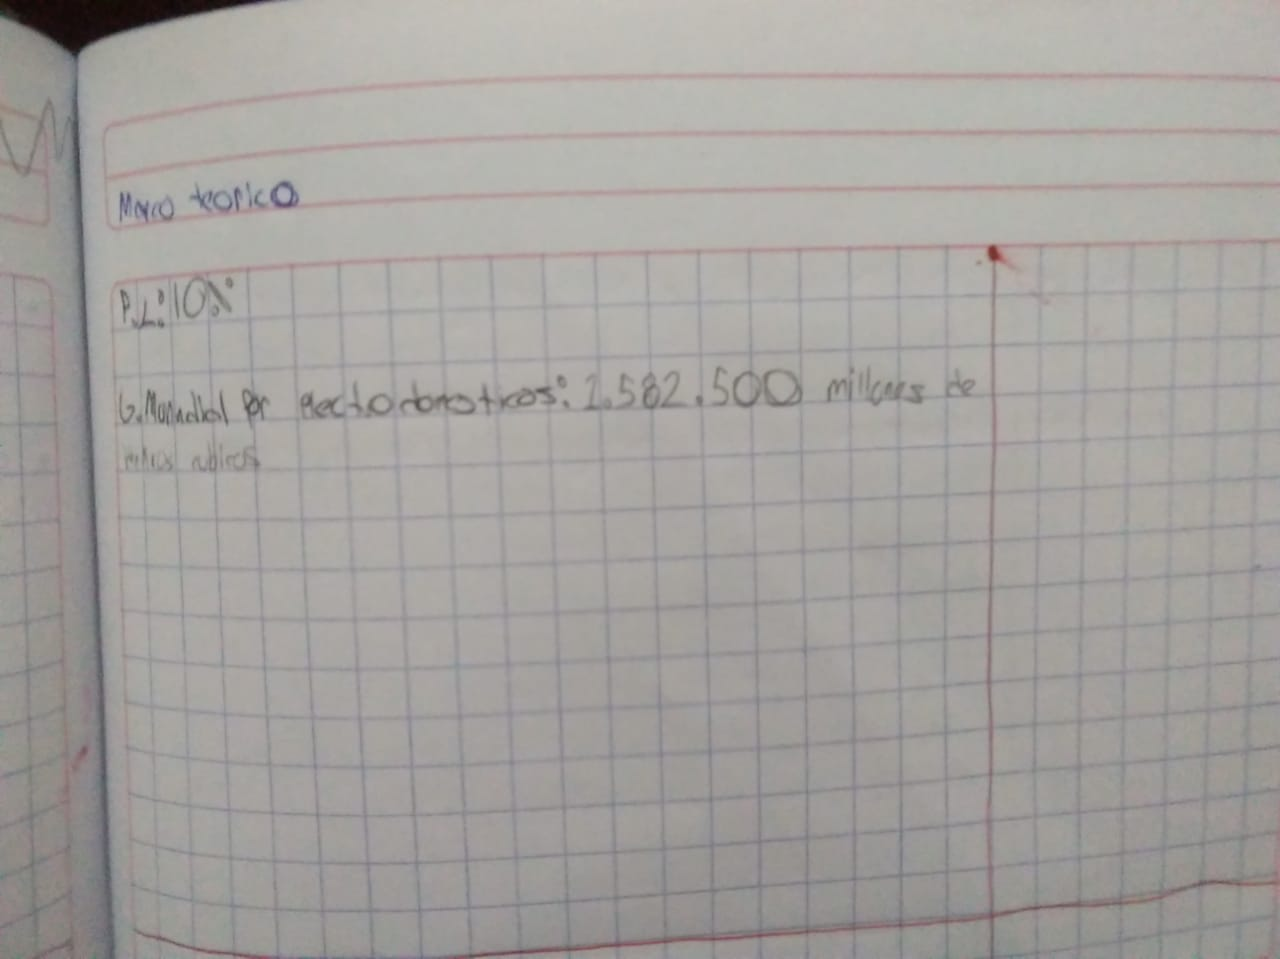 Marco teorico
P.L: 10%
G. Mundial por electrodomoticos: 1.582.500 millones de
metros cubicos